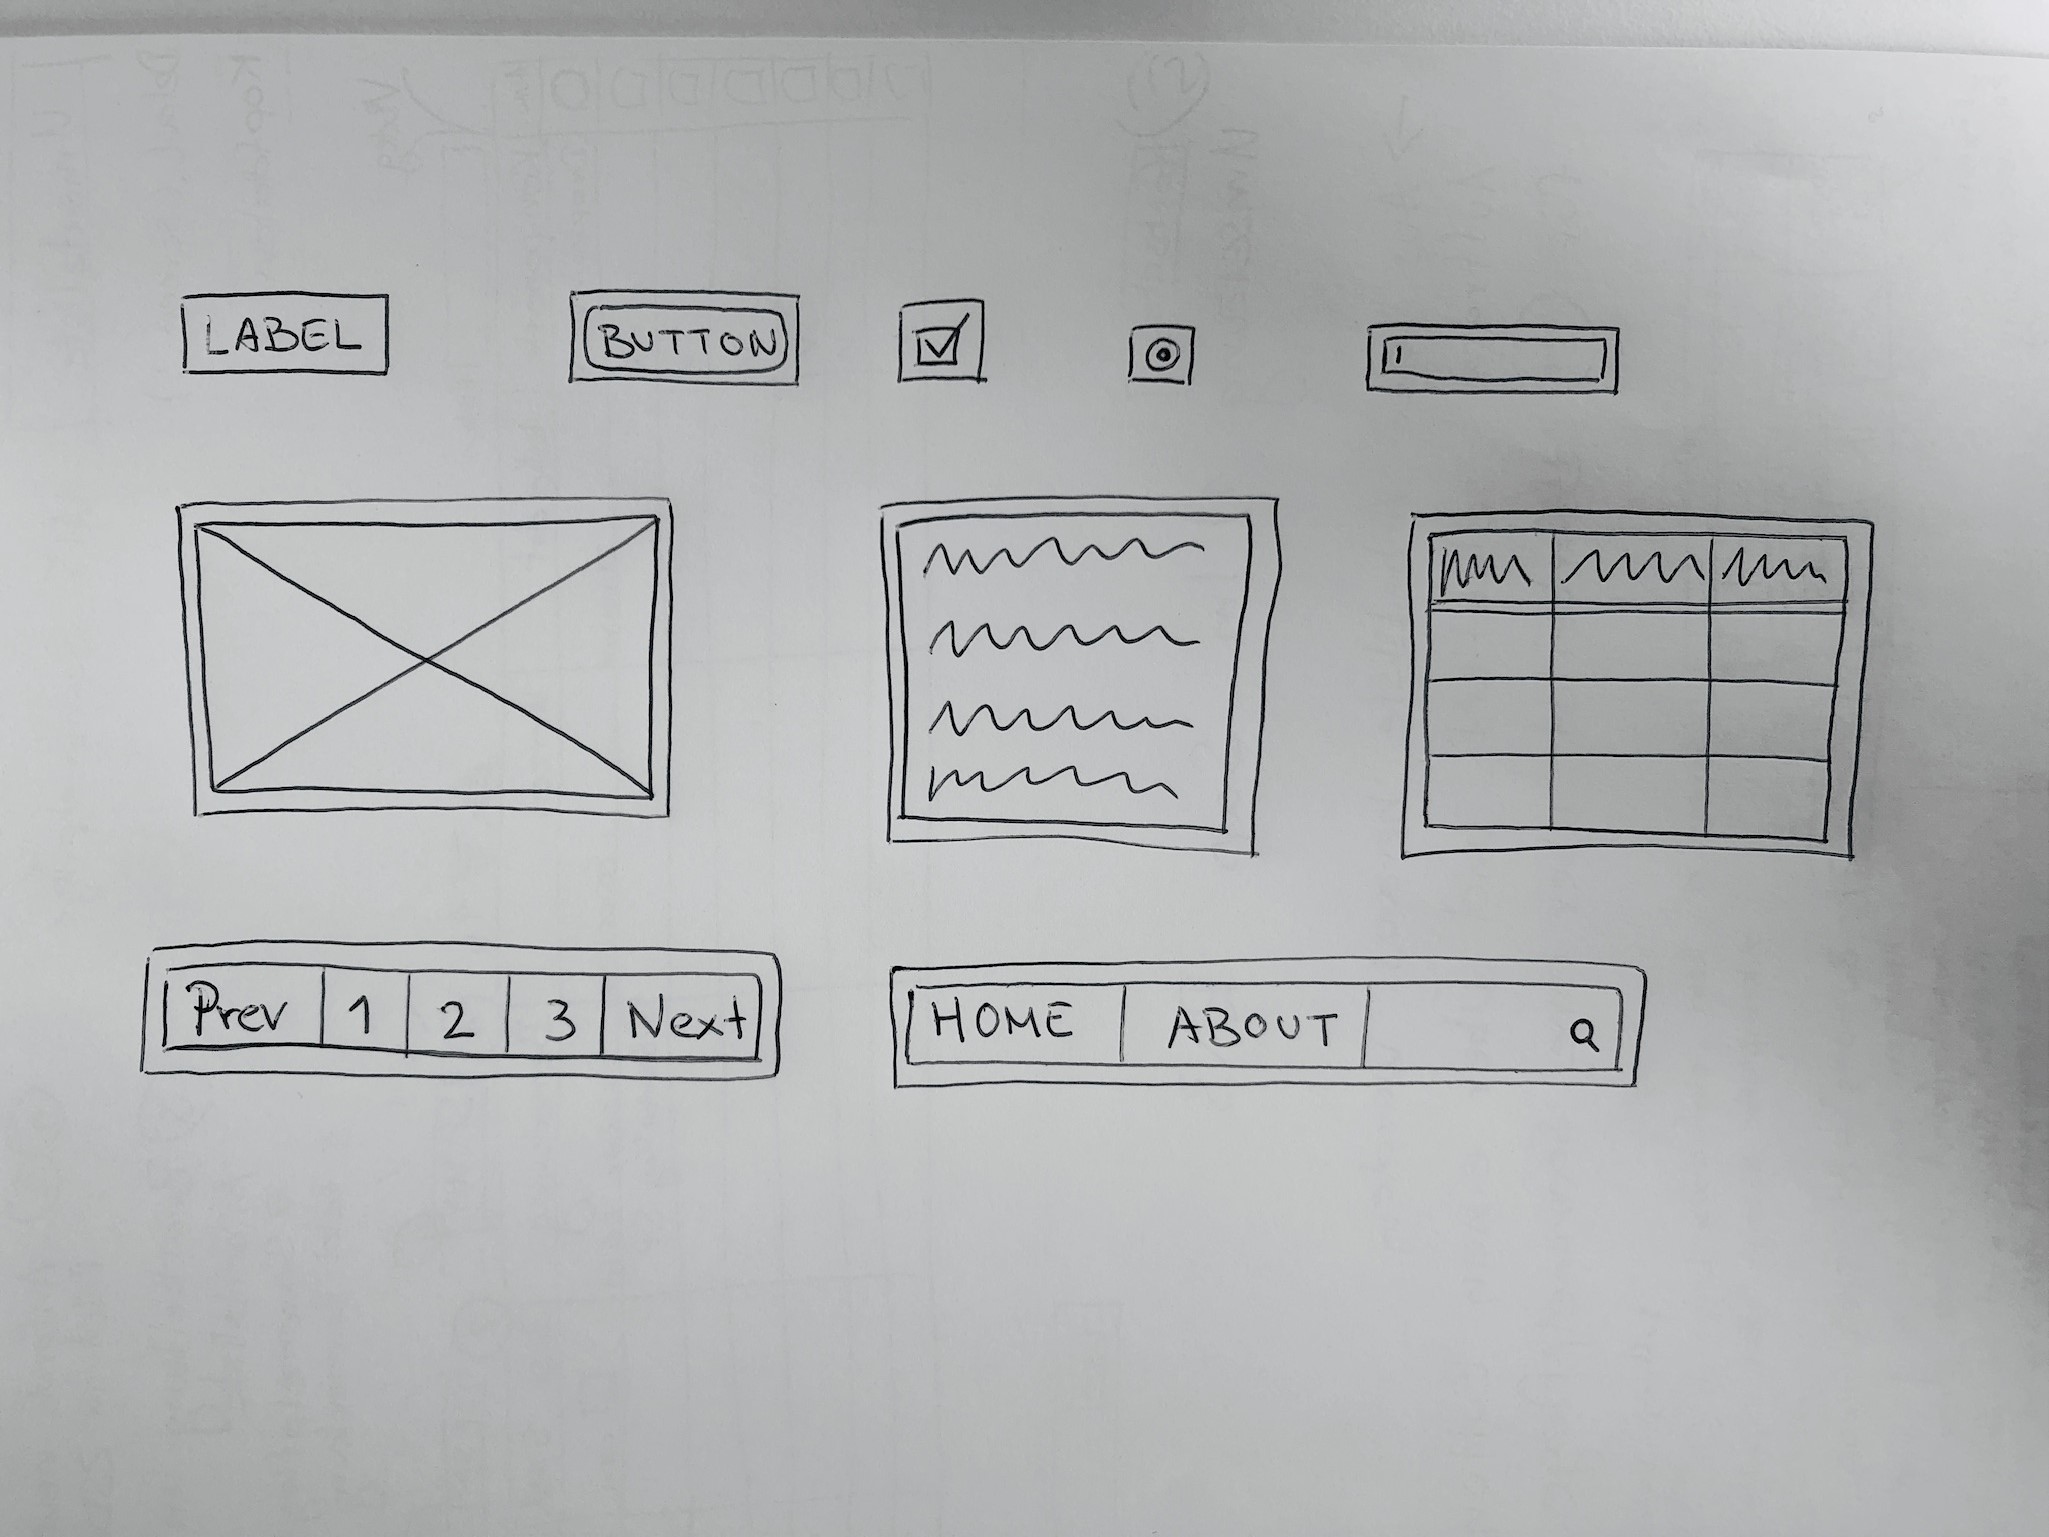 LABEL
BUTTON
Prev 1 2 3 Next
HOME ABOUT